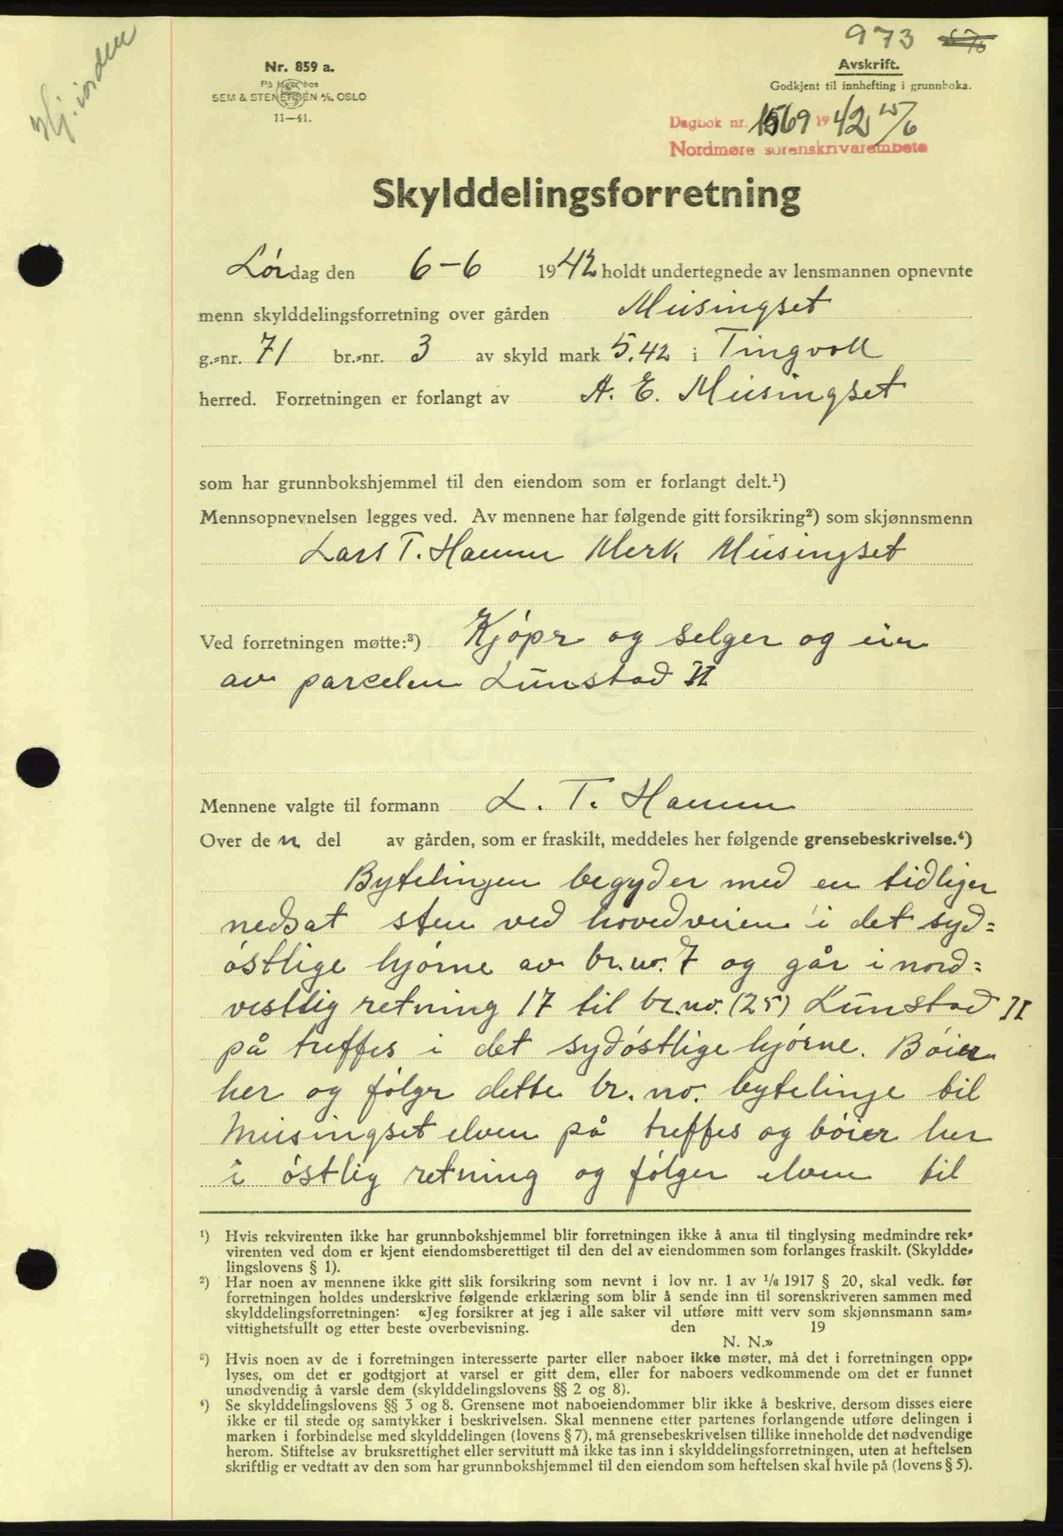 Hj. jorden
973
Nr. 859 a.
På lager hos
SEM & STENERSEN A/S, OSLO
11—41.
Avskrift.
Godkjent til innhefting i grunnboka.
Dagbok nr. 1569 1942 15/6
Nordmøre sorenskrivarembete
Skylddelingsforretning
Lørdag den 6-6 1942 holdt undertegnede av lensmannen opnevnte
menn skylddelingsforretning over gården Meisingset
g.-nr. 71 br.-nr. 3 av skyld mark 5.42 i Tingvoll
herred. Forretningen er forlangt av A. E. Meisingset
som har grunnbokshjemmel til den eiendom som er forlangt delt.¹)
Mennsopnevnelsen legges ved. Av mennene har følgende gitt forsikring²) som skjønnsmenn
Lars T. Hamn Merk Meisingset
Ved forretningen møtte:³) Kjøpr og selger og eier
av parcelen Lunstad II
Mennene valgte til formann L. T. Hamn
Over den del av gården, som er fraskilt, meddeles her følgende grensebeskrivelse.⁴)
Bytelingen begyder med en tidliger
nedsat sten ved hovedveien i det syd=
østlige hjørne av br.no. 7 og går i nord=
vestlig retning 17 til br.no. (25) Lunstad II
på treffes i det sydøstlige hjørne. Bøier
her og følgr dette br. no. bytelinje til
Meisingset elven på treffes og bøier her
i østlig retning og følger elven til
¹) Hvis rekvirenten ikke har grunnbokshjemmel blir forretningen ikke å anta til tinglysing medmindre rek-
virenten ved dom er kjent eiendomsberettiget til den del av eiendommen som forlanges fraskilt. (Skyldde-
lingslovens § 1).
²) Har noen av mennene ikke gitt slik forsikring som nevnt i lov nr. 1 av 1/6 1917 § 20, skal vedk. før
forretningen holdes underskrive følgende erklæring som blir å sende inn til sorenskriveren sammen med
skylddelingsforretningen: «Jeg forsikrer at jeg i alle saker vil utføre mitt verv som skjønnsmann sam-
vittighetsfullt og etter beste overbevisning. den 19
N. N.»
³) Hvis noen av de i forretningen interesserte parter eller naboer ikke møter, må det i forretningen opp-
lyses, om det er godtgjort at varsel er gitt dem, eller for naboers vedkommende om det er funnet
unødvendig å varsle dem (skylddelingslovens §§ 2 og 8).
⁴) Se skylddelingslovens §§ 3 og 8. Grensene mot naboeiendommer blir ikke å beskrive, dersom disses eiere
ikke er til stede og samtykker i beskrivelsen. Skal mennene etter partenes forlangende utføre delingen i
marken i forbindelse med skylddelingen (lovens § 7), må grensebeskrivelsen tillike inneholde det nødvendige
herom. Stiftelse av bruksrettighet eller servitutt må ikke tas inn i skylddelingsforretningen, uten at heftelsen
skriftlig er vedtatt av den som har grunnbokshjemmel til den eiendom som heftelsen skal hvile på (lovens § 5).